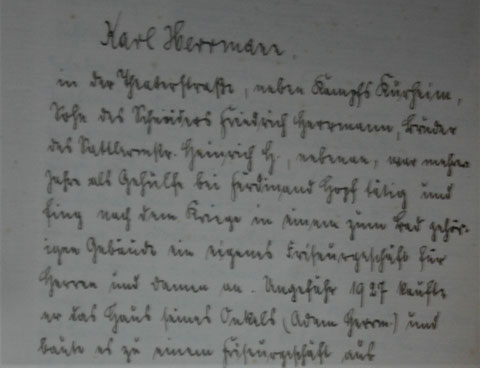 Karl Herrmann.
in der Theaterstraße, neben Kampfs Kurheim,
Sohn des Schneiders Friedrich Herrmann, Bruder
des Sattlermstr. Heinrich H., nebenan, war mehr.
Jahre als Gehülfe bei Ferdinand Hopf tätig und
fing nach dem Kriege in einem zum Bad gehör-
igen Gebäude ein eigenes Friseurgeschäft für
Herren und damen an. Ungefähr 1927 kaufte
er das Haus seines Onkels (Adam Herrm.) und
baute es zu einem Friseurgeschäft aus